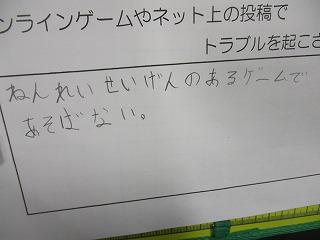 ンラインゲームやネット上の投稿で
トラブルを起こさ
ねんれいせいげんのあるゲームで
あそばない。